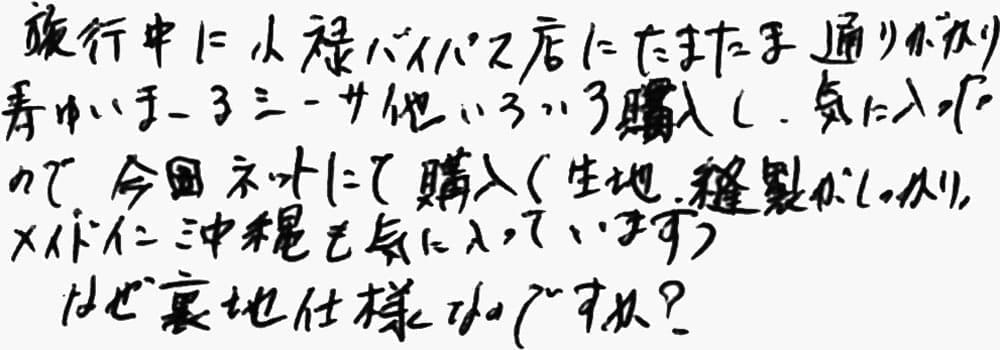 旅行中に小禄バイパス店にたまたま通りがかり
寿ゆいまーるシーサー他いろいろ購入し、気に入った
ので今回ネットにて購入(生地、縫製がしっかり、
メイドイン沖縄も気に入っています)
なぜ裏地仕様なのですか?